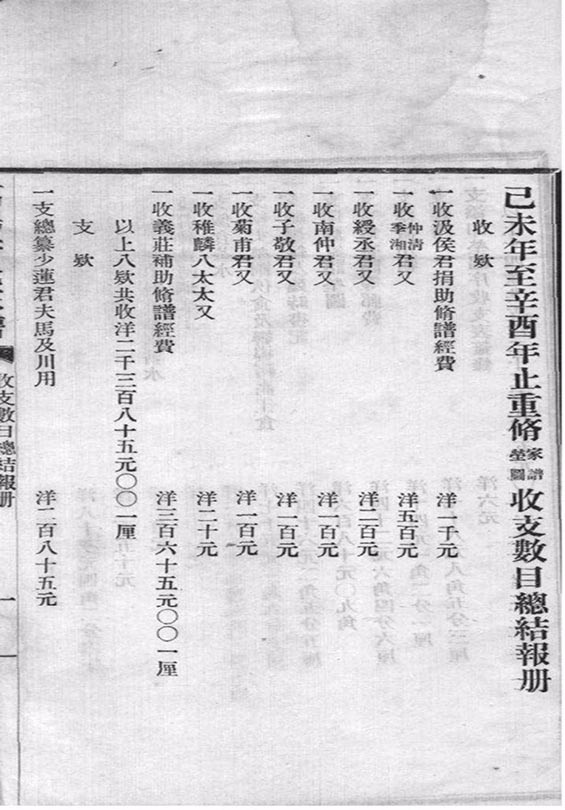 己未年至辛酉年止重脩家譜塋圖收支數目總結報册
收欵
一收汲侯君捐助脩譜經費 洋一千元
一收仲清季湘君又 洋五百元
一收綬丞君又 洋二百元
一收南仲君又 洋一百元
一收子敬君又 洋一百元
一收菊甫君又 洋一百元
一收稚麟八太太又 洋二十元
一收義莊補助脩譜經費 洋三百六十五元〇〇一厘
以上八欵共收洋二千三百八十五元〇〇一厘
支欵
一支總纂少蓮君夫馬及川用 洋二百八十五元
收支數目總結報册
一